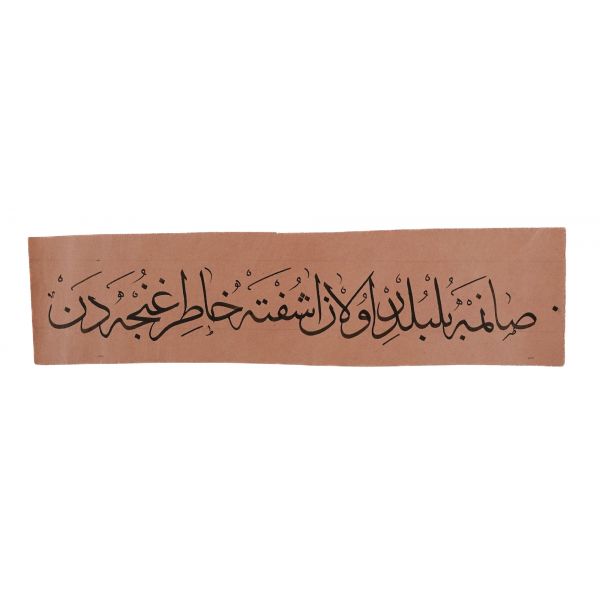 صانمه بلبلدر اولان اشفته خاطر غنجه دن